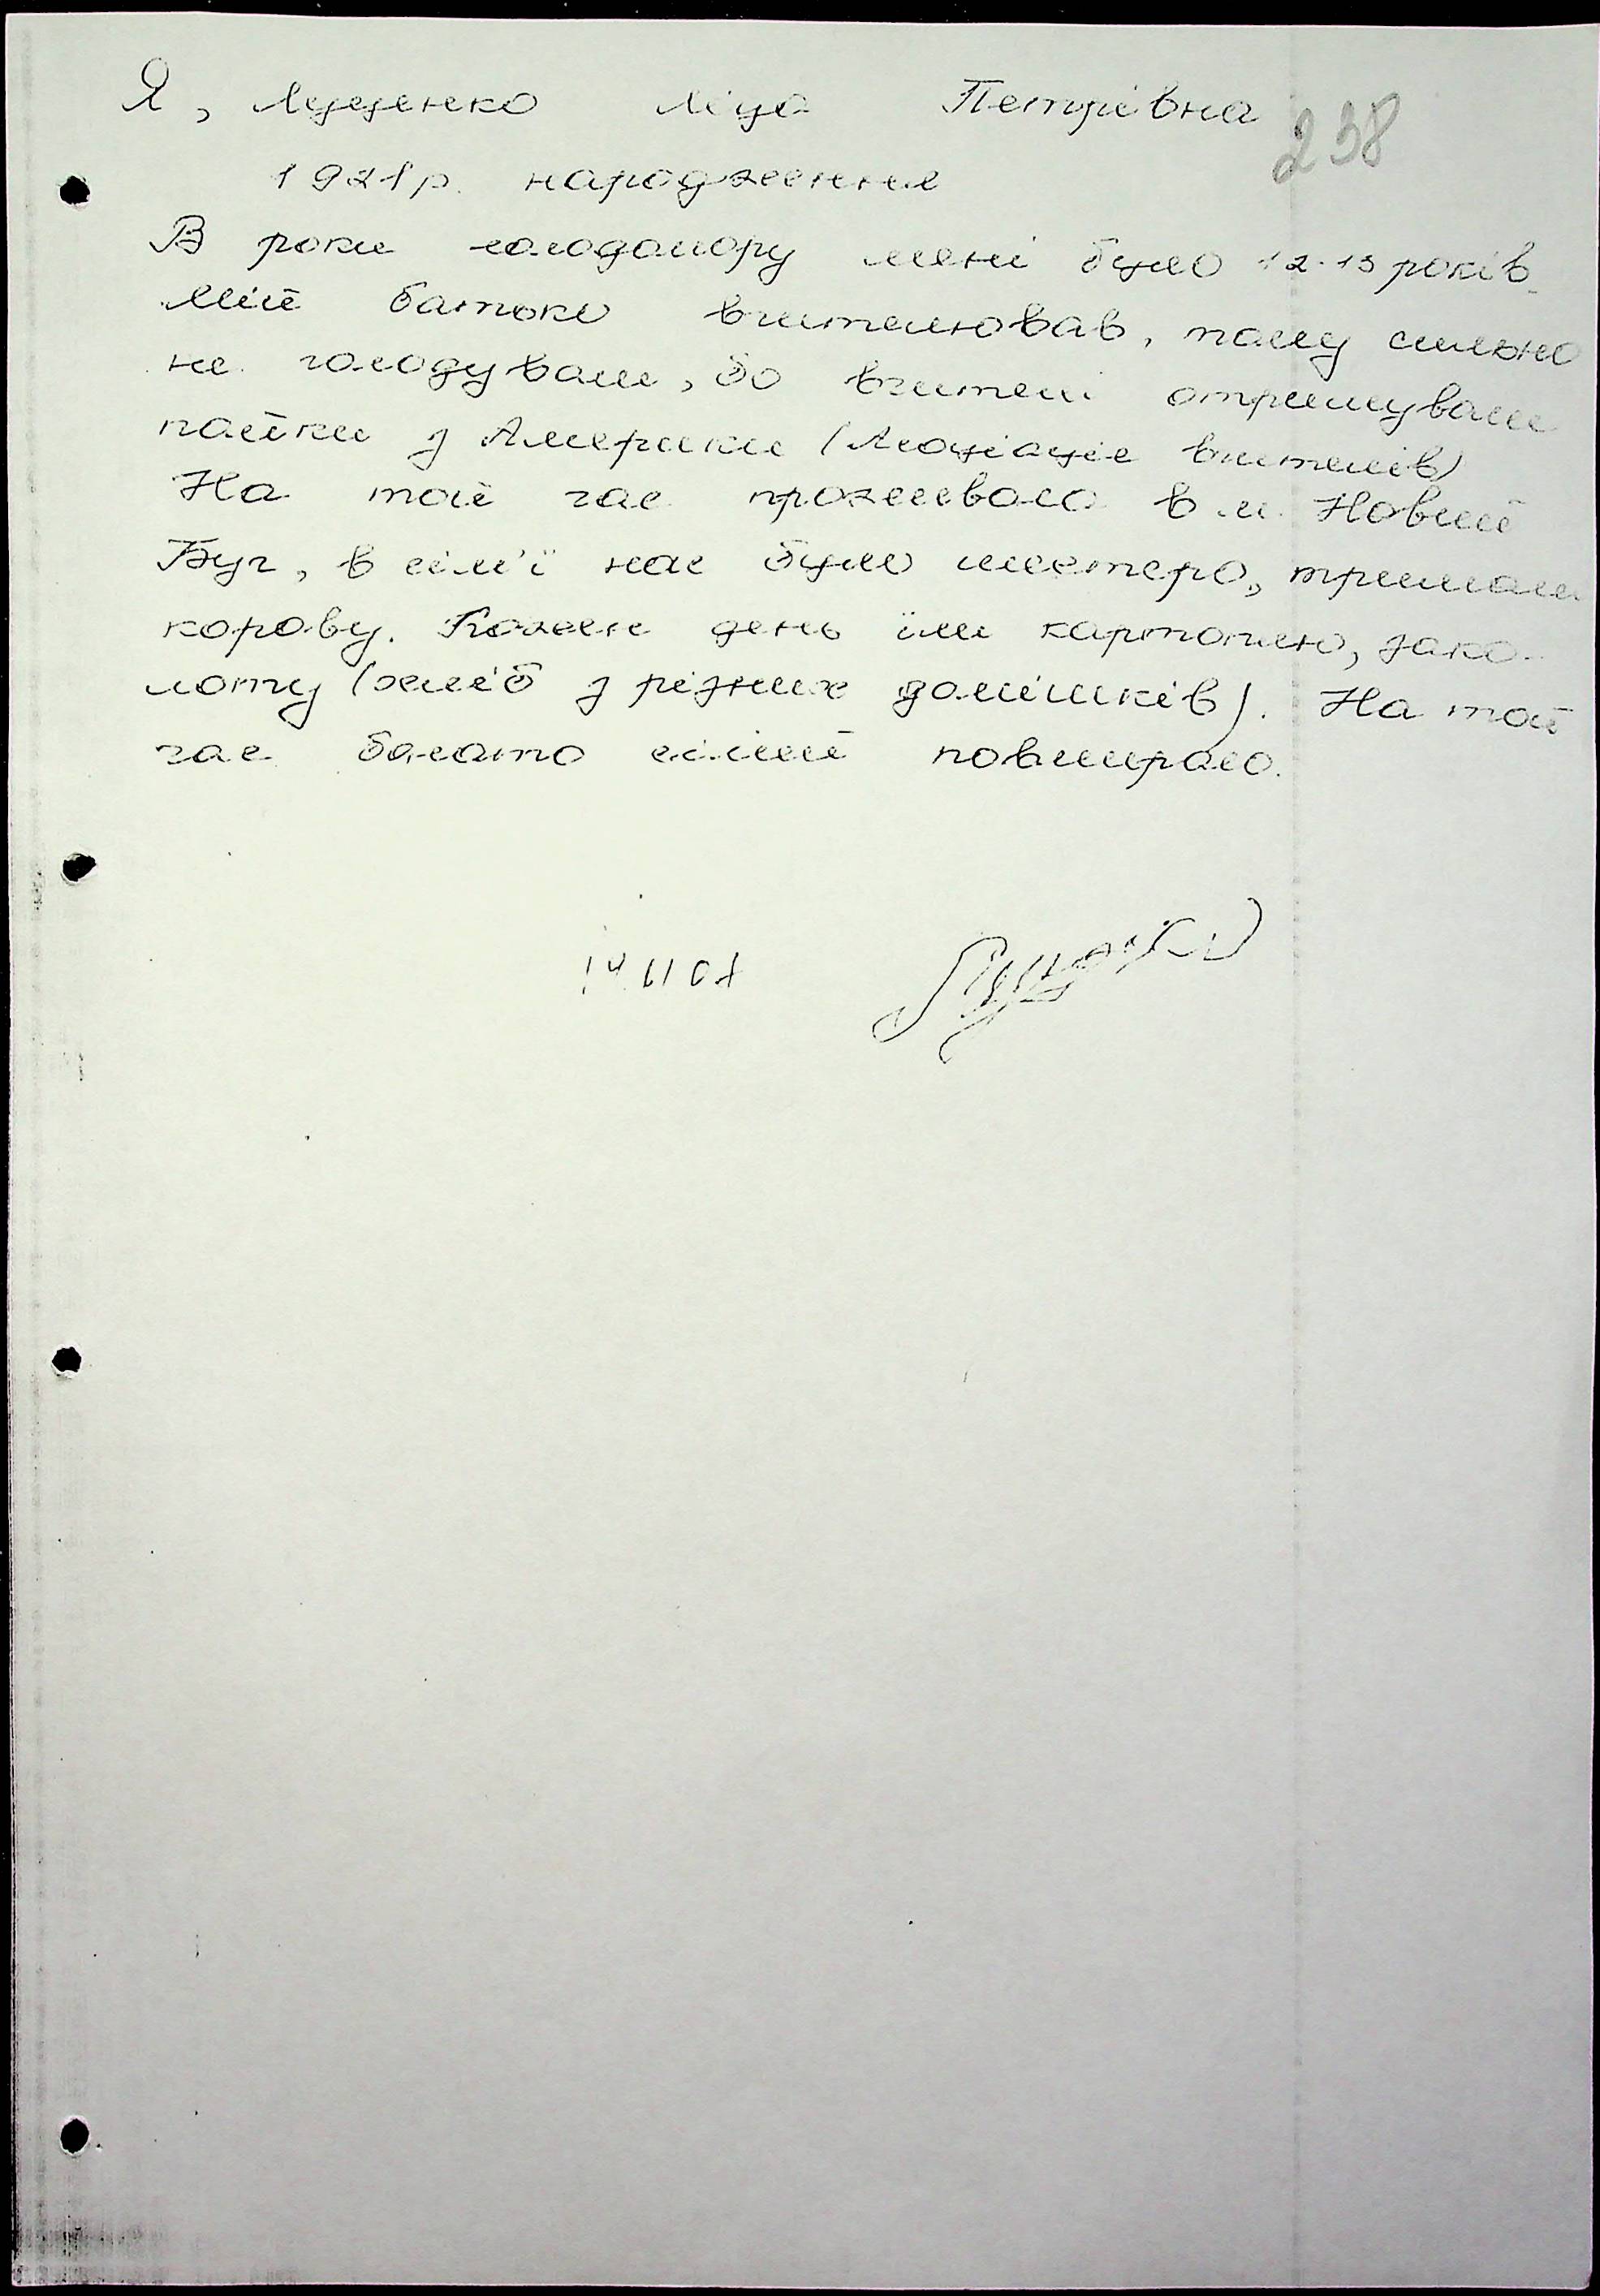 Я, Луценко Ліда Петрівна
238
1921р. народження
В роки голодомору мені було 12-13 років.
Мій батько вчителював, тому сильно
не голодували, бо вчителі отримували
пайки з Америки (Асоціація вчителів)
На той час проживала в м. Новий
Буг, в сім'ї нас було шестеро, тримали
корову. Кожен день їли картоплю, зако-
лоту (хліб з різних домішків). На той
час багато сімей повмирало.